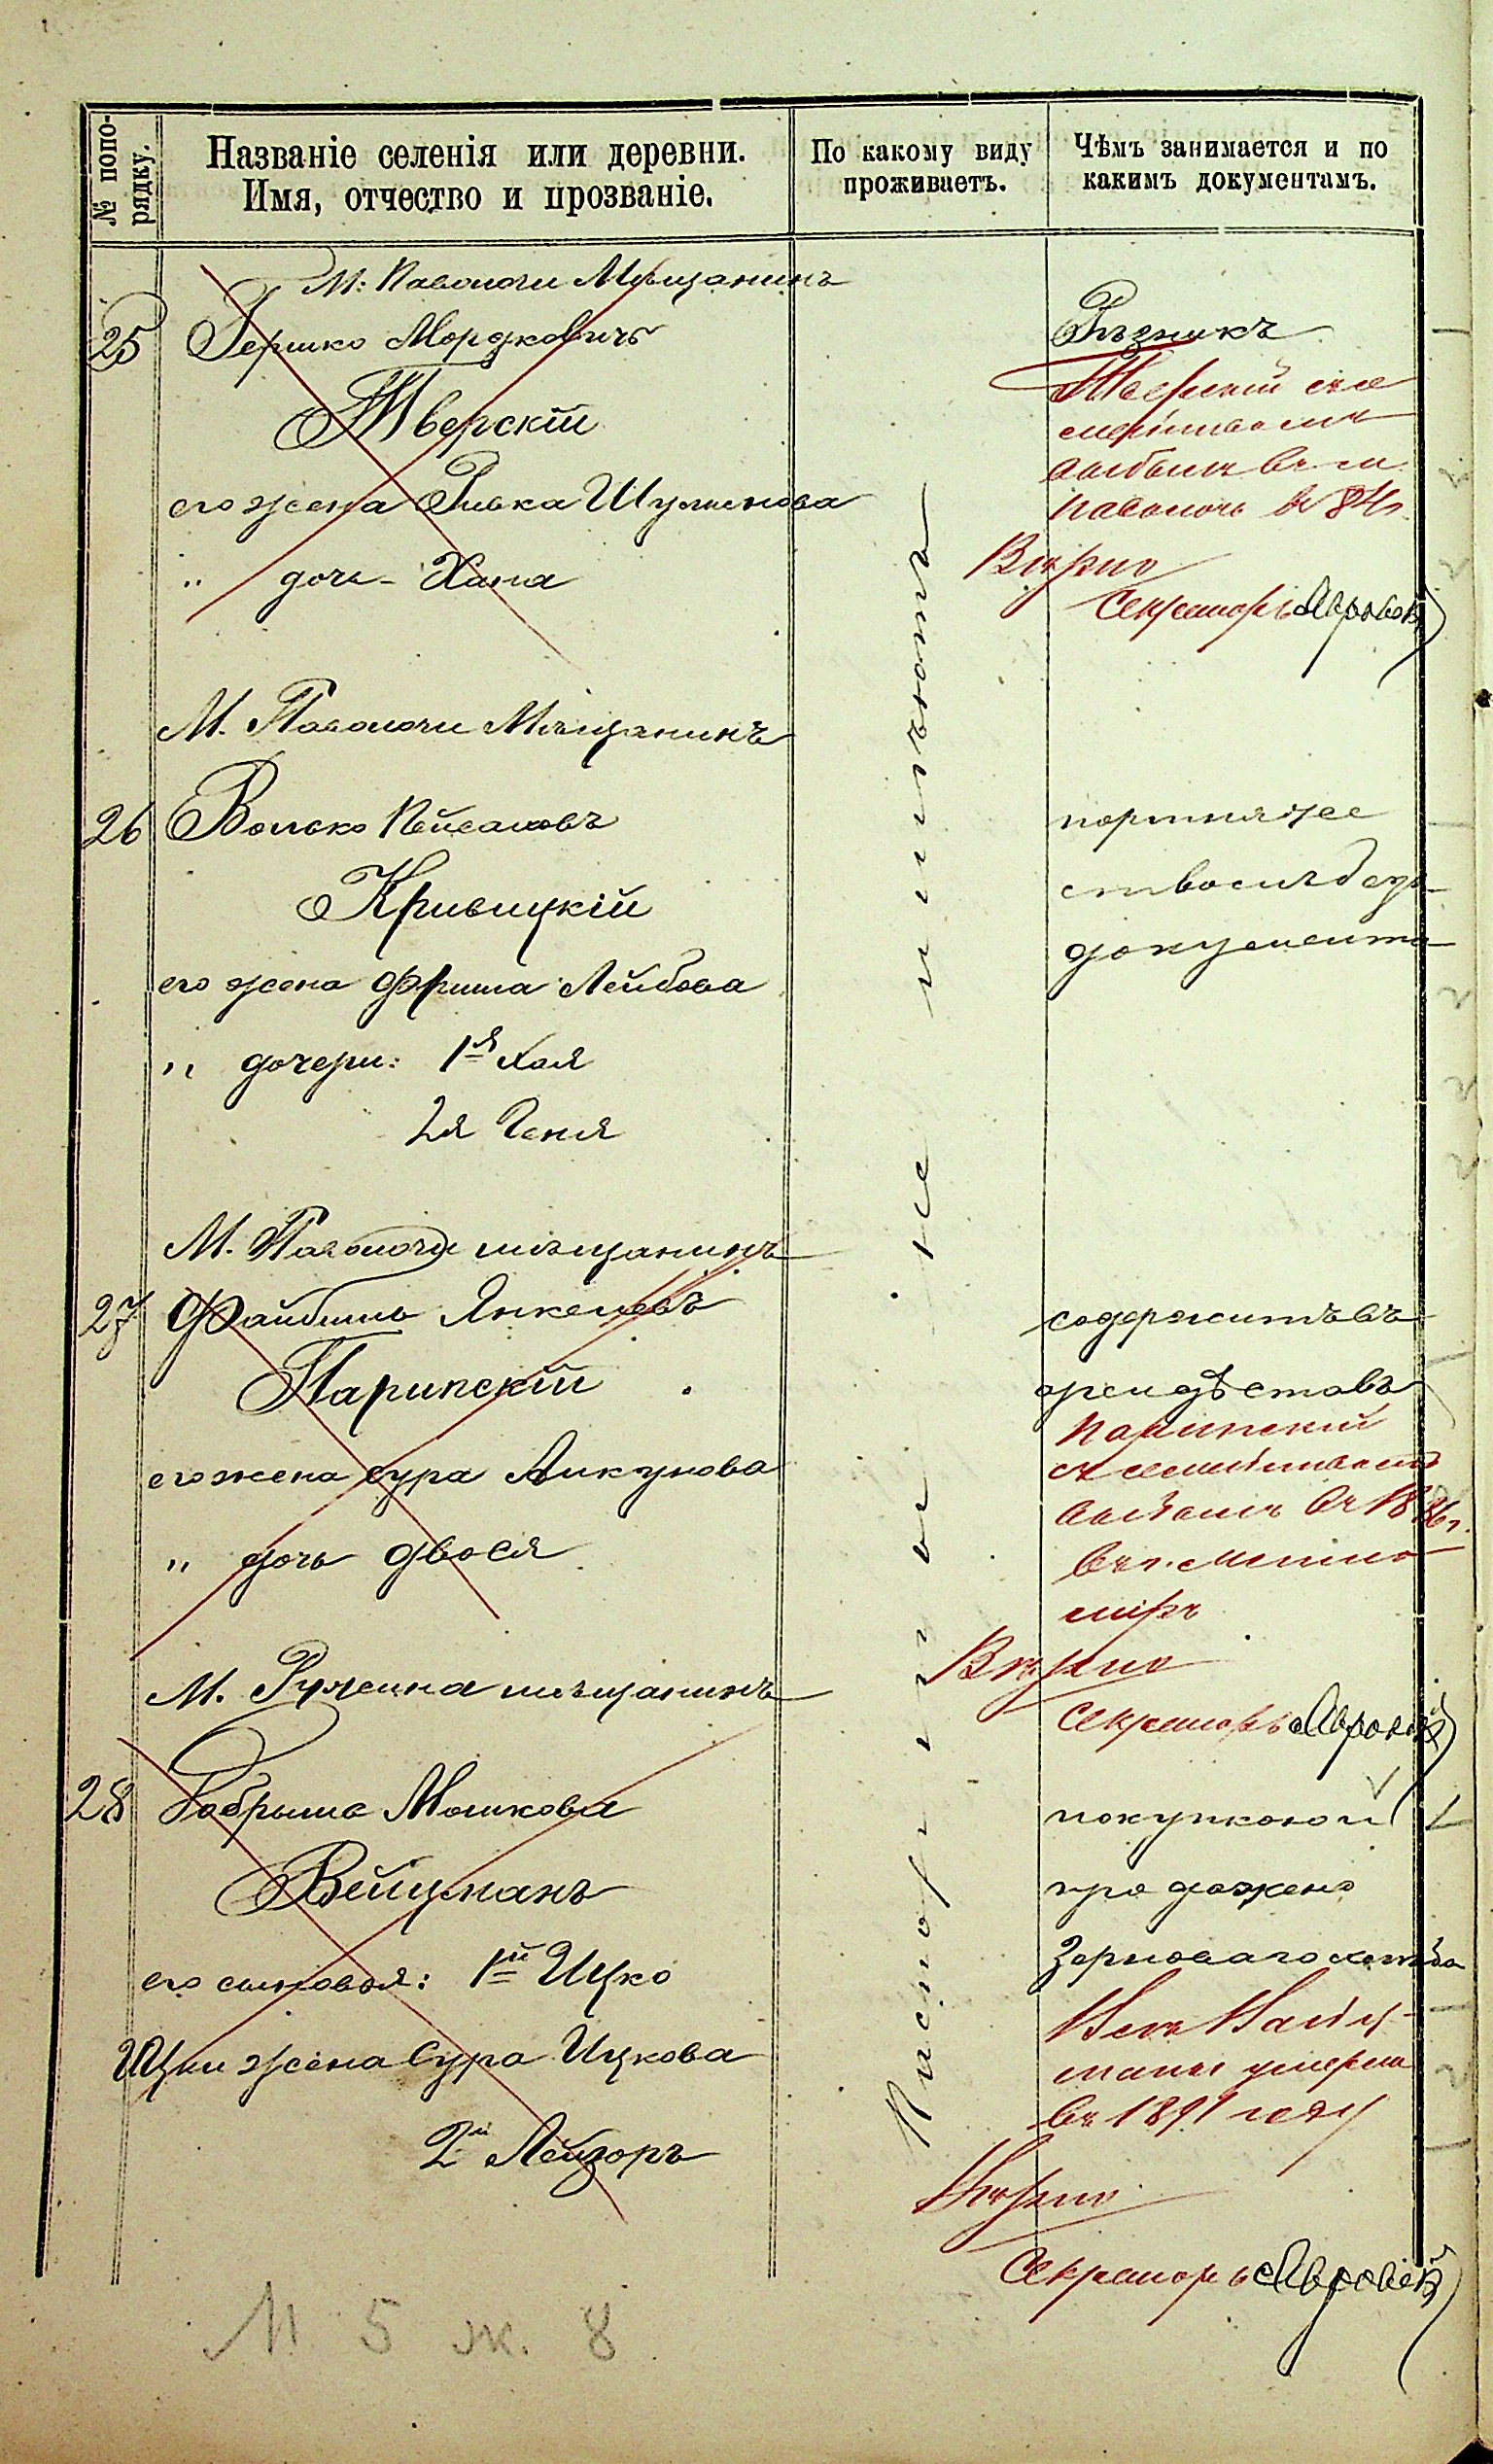 № попо-
рядку.
Названіе селенія или деревни.
Имя, отчество и прозваніе.
По какому виду
проживаетъ.
Чѣмъ занимается и по
какимъ документамъ.
М: Паволочи Мѣщанинъ
25 Гершко Мордковичъ
Тверскій
его жена Ривка Шулимова
" дочь - Хана
Рѣзникъ
Тверскій съ се
мействомъ
выбылъ въ м.
Паволочь въ 84 г.
Вѣрно
Секретарь
М. Паволочи Мѣщанинъ
26 Волько Пейсаховъ
Кривицкій
его жена Фрима Лейбова
" дочери: 1я Хая
2я Геня
портняже
ствомъ безъ
документа
М. Паволочи мѣщанинъ
27 Файбишъ Янкелевъ
Парипскій
его жена Сура Анкунова
" дочь Двося
содержитъ въ
арендѣ ставъ
Парипскій
съ семействомъ
выбылъ въ 1886 г.
въ г. Жито
миръ
Вѣрно
Секретарь
М. Ружина мѣщанинъ
28 Габрыше Мошкова
Вейцманъ
его сыновья: 1й Ицко
Ицки жена Сура Ицкова
2й Лейзоръ
покупкою и
продажею
Зерноваго хлѣба
Вейц-
маны умерла
въ 1891 году
Вѣрно
Секретарь
Паспорта не имѣютъ
М. 5 ж. 8